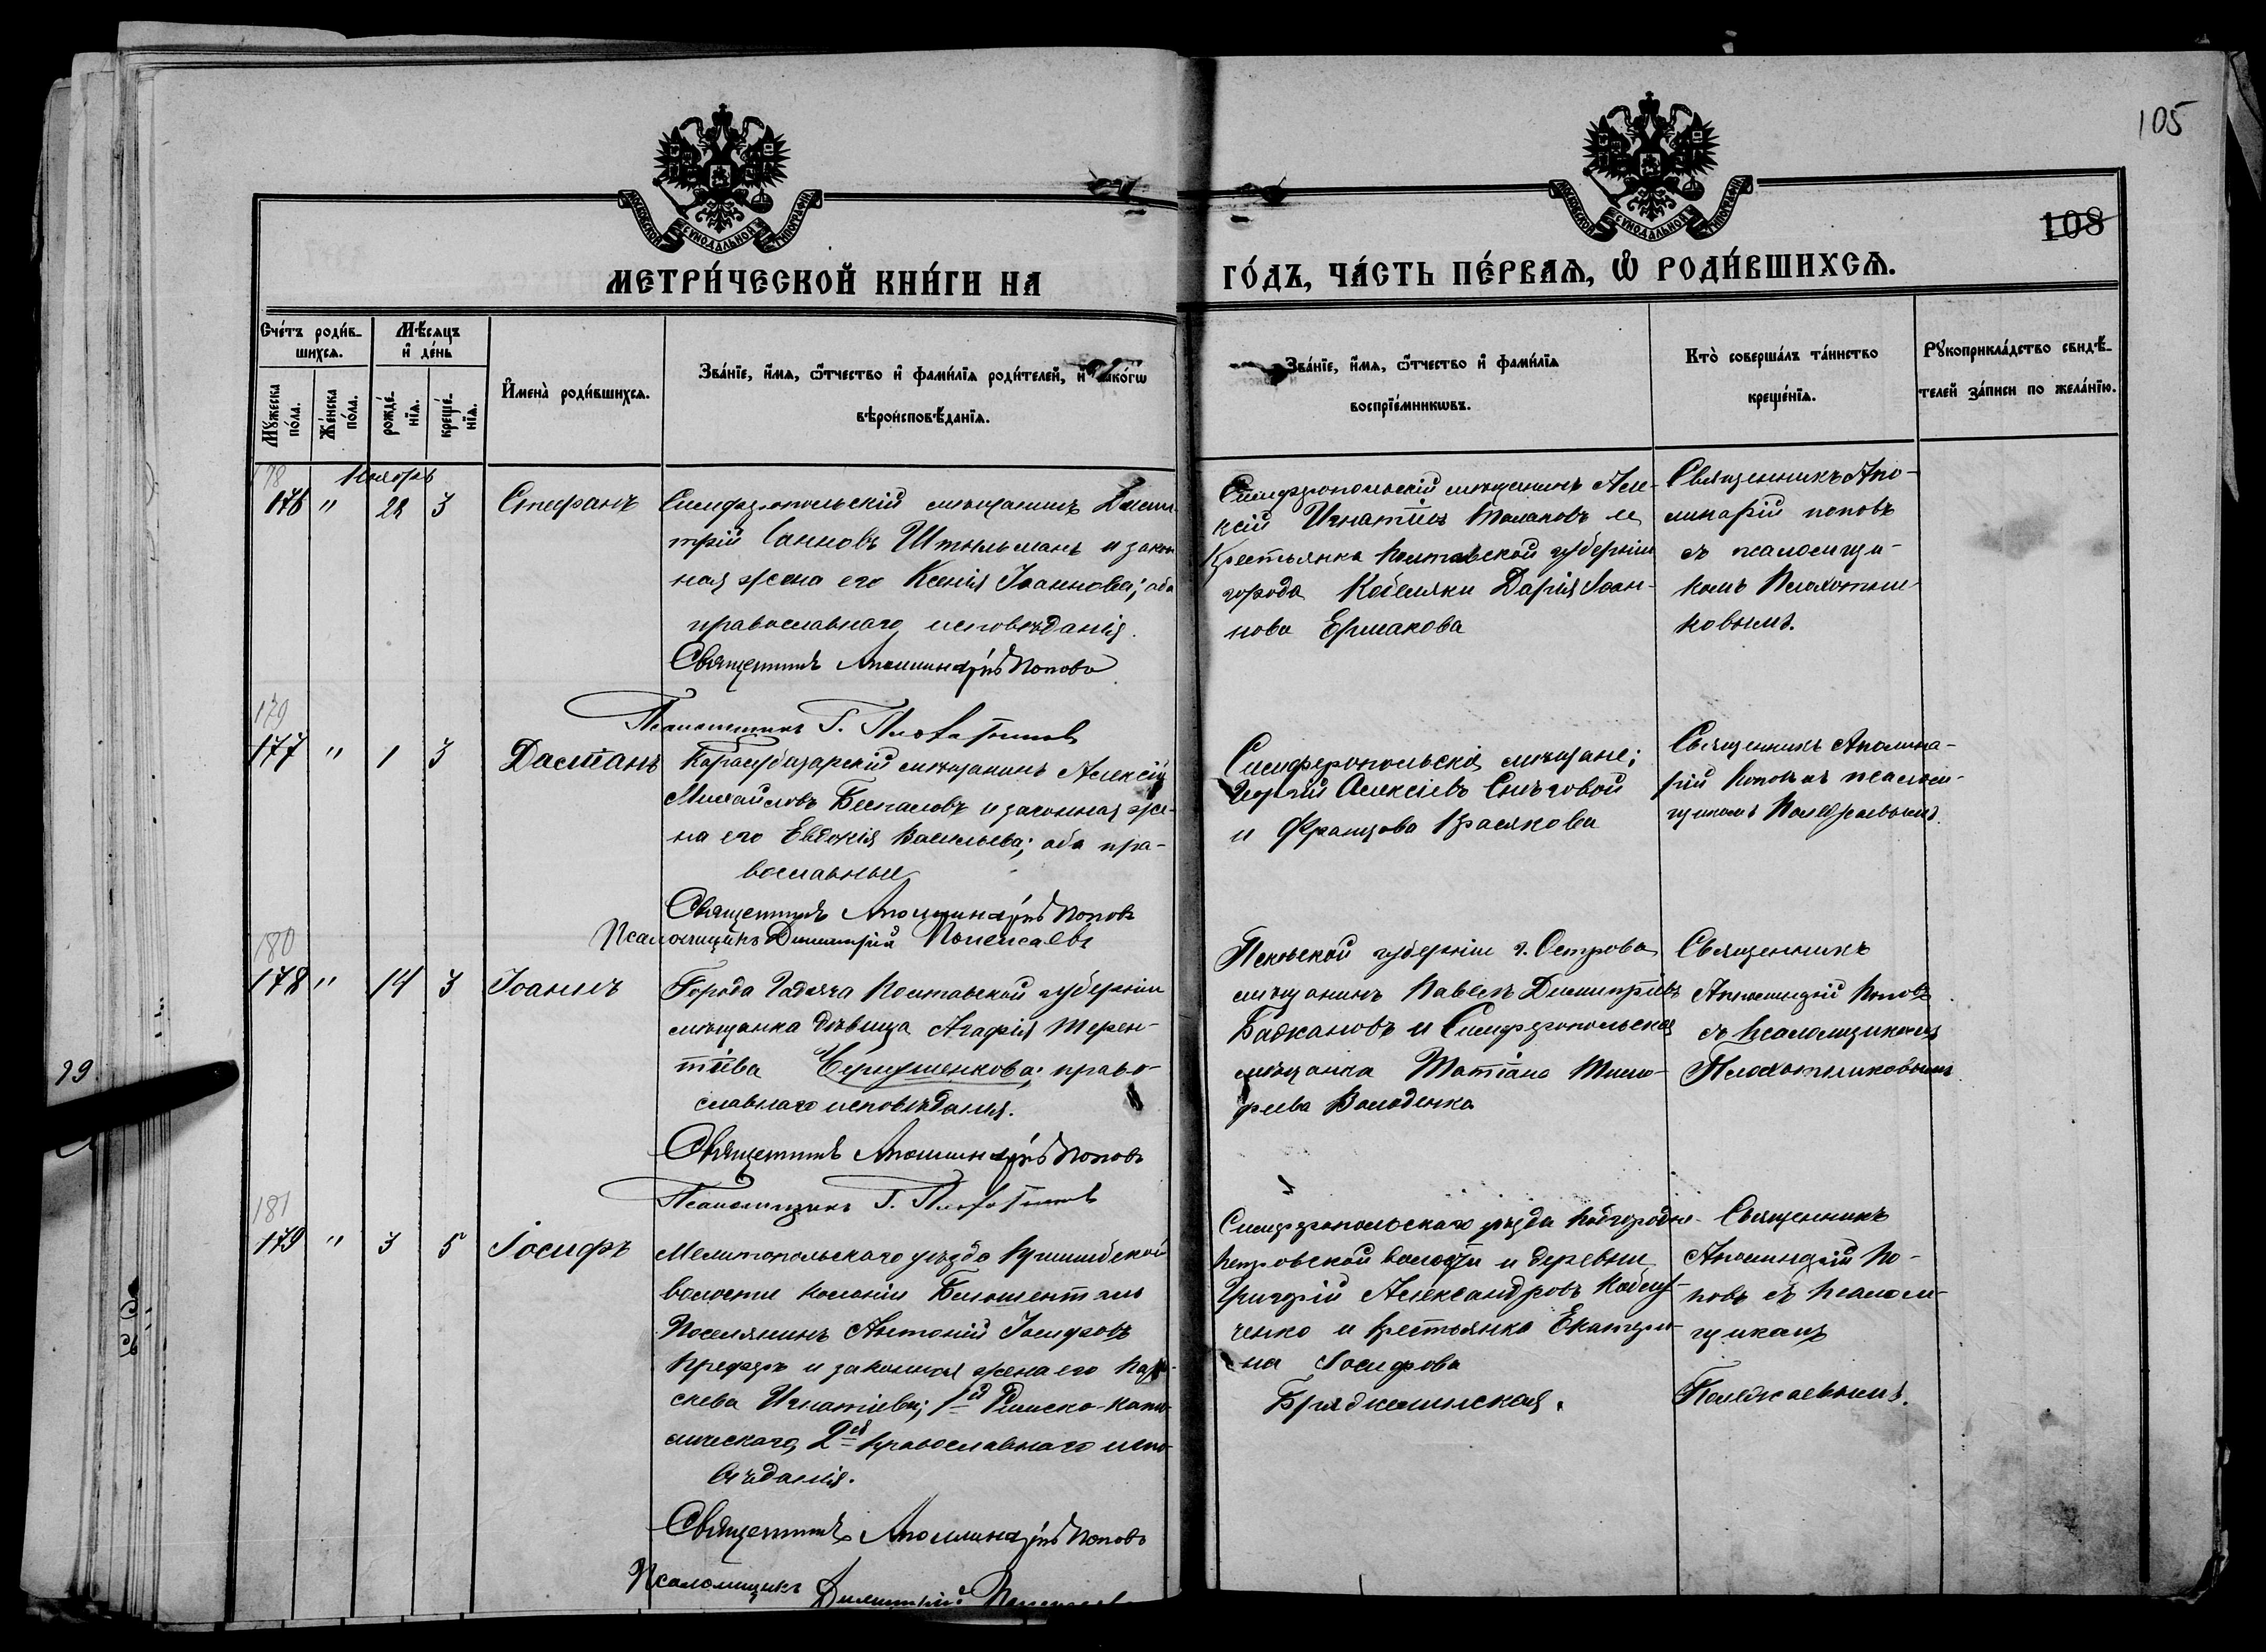 105
108
МЕТРИ́ЧЕСКОЙ КНИ́ГИ НА
ГО́ДЪ, ЧА́СТЬ ПЕ́РВАѦ, Ѽ РОДИ́ВШИХСѦ.
Сче́тъ роди́в-
шихсѧ.
Мѣ́сяцъ
и҆ де́нь
Мꙋ́жеска
по́ла.
Же́нска
по́ла.
рожде́-
нїѧ.
креще́-
нїѧ.
И҆мена̀ роди́вшихсѧ.
Зва́нїе, и҆́мѧ, ѻ҆́тчество и҆ фами́лїѧ роди́телей, и҆ како́гѡ
вѣроисповѣ́данїѧ.
Зва́нїе, и҆́мѧ, ѻ҆́тчество и҆ фами́лїѧ
воспрїе́мникѡвъ.
Кто̀ соверша́лъ та́инство
креще́нїѧ.
Рꙋкоприкла́дство свидѣ́-
телей за́писи по жела́нїю.
178
Ноябрь
176 " 22 3 Стефанъ
Симферопольскій мѣщанинъ Дими-
трій Іанновъ Штыльманъ и закон
ная жена его Ксенія Іоаннова; оба
православнаго исповѣданія.
Священникъ Аполлинарій Поповъ
Псаломщикъ Г. Плохотниковъ
Симферопольскій мѣщанинъ Але-
ксій Игнатіевъ Толмаковъ и
Крестьянка Полтавской губерніи
города Кобеляки Дарія Іоан-
нова Ермакова
Священникъ Апо-
линарій Поповъ
съ псаломщи-
комъ Плохотни-
ковымъ.
179
177 " 1 3 Даміанъ
Карасубазарскій мѣщанинъ Алексій
Михайловъ Беспаловъ и законная же-
на его Евдокія Васильева; оба пра-
вославные
Священникъ Аполлинарій Поповъ
Псаломщикъ Димитрій Полежаевъ
Симферопольскіе мѣщане;
Георгій Алексіевъ Снѣговой
и Францова Красякова
Священникъ Аполлина-
рій Поповъ съ псалом-
щикомъ Полежаевымъ.
180
178 " 14 3 Іоаннъ
Города Гадяча Полтавской губерніи
мѣщанка дѣвица Агафія Терен-
тіева Черпушенкова; право-
славнаго исповѣданія.
Священникъ Аполлинарій Поповъ
Псаломщикъ Г. Плохотниковъ
Псковской губерніи г. Острова
мѣщанинъ Павелъ Димитріевъ
Бажановъ и Симферопольская
мѣщанка Татіана Тимо-
феева Володенко
Священникъ
Аполлинарій Поповъ
съ Псаломщикомъ
Плохотниковымъ
181
179 " 3 5 Іосифъ
Мелитопольскаго уѣзда Пришибской
волости колоніи Блюменталь
Поселянинъ Антоній Іосифовъ
Преферъ и законная жена его Пара-
скева Игнатіева; 1й Римско-като-
лическаго, 2ая православнаго испо-
вѣданія.
Священникъ Аполлинарій Поповъ
Псаломщикъ Димитрій Полежаевъ
Симферопольскаго уѣзда Подгородне-
Петровской волости и деревни
Григорій Александровъ Коблу-
ченко и крестьянка Екатери-
на Іосифова
Бряджинская.
Священникъ
Аполлинарій По-
повъ съ Псалом-
щикомъ
Полежаевымъ.
99